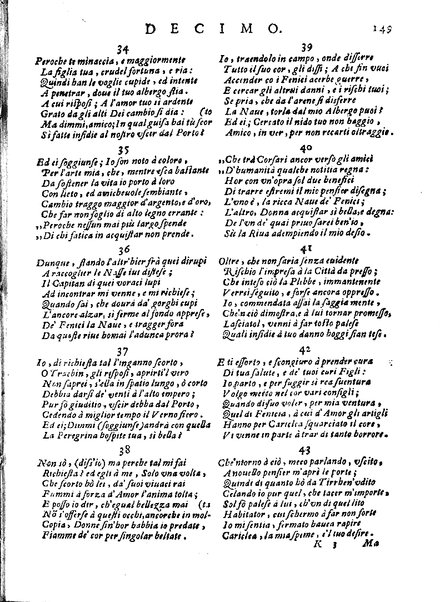 DECIMO. 149
34
Peroche te minaccia, e maggiormente
La figlia tua, crudel fortuna, e ria:
Quindi ban le voglie cupide, ed intente
A penetrar, doue il tuo albergo stia.
A cui risposi; A l'amor tuo si ardente
Grato dagli alti Dei cambio si dia: (to
Ma dimmi, amico; In qual guisa bai tu scor
Si fatte insidie al nostro vser dal Porto?
35
Ed ei soggiunse; Io son noto à coloro,
Per l'arte mia, che, mentre vsca bastante
Da sostener la vita io porto à loro
Con lieto, ed amicheuole sembiante,
Cambio traggo maggior d'argento, e d'oro,
Che far non soglio di alto legno errante:
„Peroche nessun mai più largo spende
„Di chi fatica in acquistar non prende.
36
Dunque, stando l'altr'hier frà quei dirupi
A raccoglier le Nasse iui distese;
Il Capitan di quei voraci lupi
Ad incontrar mi venne, e mi richiese;
Quando sai, che dourà da' gorghi cupi
L'ancore alzar, si ferme al fondo apprese,
De' Fenici la Naue, e tragger fora
Da queste riue homai l'adunca prora?
37
Io, di richiesta tal l'inganno scorto,
O Trachin, gli risposi, aprirti'l vero
Non saprei, s'ella in spatio lungo, ò corto
Debbia darsi de' venti à l'alto impero;
Pur sò giudico, vscir debba dal Porto,
Cedendo à miglior tempo il Verno fiero.
Ed ei; Dimmi (soggiunse) andrà con quella
La Peregrina hospite tua, sì bella?
38
Non sò, (diss'io) ma perche tal mi fai
Richiesta? ed egli à me, Solo una volta,
Che scorto hò lei, da' suoi viuaci rai
Fummi à forza d'Amor l'anima tolta;
E posso io dir, ch'egual bellezza mai (ta
Nō s'offerse à questi occhi, ancorche in mol-
Copia, Donne sin'hor habbia io predate,
Fiamme de' cor per singolar beltate.
39
Io, traendolo in campo, onde disserre
Tutto il suo cor, gli dissi; A che fin vuoi
Accender co i Fenici acerbe guerre,
E cercar gli altrui danni, e i rischi tuoi;
Se pria, che da l'arene si disserre
La Naue, torla dal mio Albergo puoi?
Ed ei; Cercar il nido tuo non haggio,
Amico, in ver, per non recarti oltraggio.
40
„Che trà Corsari ancor verso gli amici
„D'humanità qualche notitia regna:
Hor con vn'opra sol due benefici
Di trarre estremi il mio pensier disegna;
L'vno è, la ricca Naue de' Fenici;
L'altro, Donna acquistar sì bella, e degna:
De l'vn de' quai priuo sarei ben'io,
Sè la Riua adempiendo il mio desio.
41
Oltre, che non saria senza euidente
Rischio l'impresa à la Città da presso;
Che inteso ciò la Plebbe, immantenente
Verria seguito, e forse ancora oppresso.
Io, commendata assai la saggia mente,
Ch'n ciò dimostra, e à lui tornar promesso,
Lasciatol, venni à far to sto palese
Quali insidie à tuo danno hoggi sian tese.
42
E ti essorto, e scongiuro à prender cura
Di tua salute, e de' tuoi curi Figli:
Io parto, e per fuggir sì rea sventura
Volgo meco nel cor vari consigli;
Quando discior voler, per mia ventura,
Quel di Fenicia, à cui d'Amor gli artigli
Hanno per Cariclea squarciato il core,
Vi venne in parte à trar di tanto horrore.
43
Che'ntorno à ciò, meco parlando, vscito,
A nouello pensier m'aprì le porte;
Quindi di quanto hò da Tirrhen'vdito
Celando io pur quel, che tacer m'importe,
Sol fò palese à lui, ch'vn di quel lito
Habitator, cui schermo à far non forte
Io mi sentia, fermato bauea rapire
Cariclea, la mia speme, e'l tuo desire.
K 3 Ma